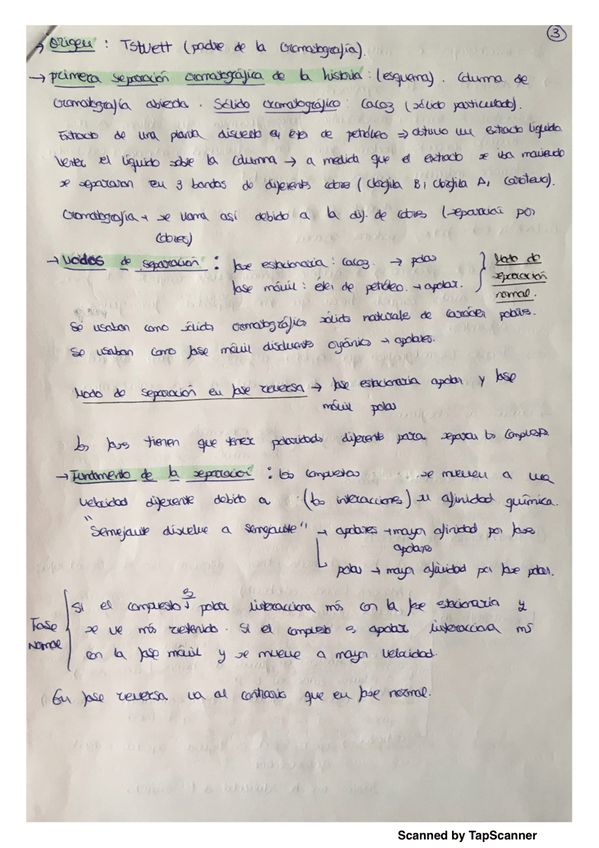 ③
→ Origen : Tstwett (padre de la cromatografía).
→ primera separación cromatográfica de la historia : (esquema). Columna de
cromatografía abierta. Sólido cromatográfico : CaCO3 (sólido particulado).
Extracto de una planta disuelto en éter de petróleo ⇒ obtuvo un extracto líquido.
Verter el líquido sobre la columna → a medida que el extracto se iba moviendo
se separaron en 3 bandas de diferentes colores (Clorofila B, clorofila A, caroteno).
Cromatografía → se llama así debido a la dif. de colores (separación por
colores)
→ Modos de separación : fase estacionaria : CaCO3. → polar
fase móvil : éter de petróleo. → apolar. } Modo de separación normal.
Se usaban como sólido cromatográfico sólidos naturales de carácter polares.
Se usaban como fase móvil disolvente orgánico → apolares.
Modo de separación en fase reversa → fase estacionaria apolar y fase
móvil polar
Las fases tienen que tener polaridades diferente para separar los compuestos.
→ Fundamento de la separación : los compuestos se mueven a una
velocidad diferente debido a (las interacciones) su afinidad química.
"Semejante disuelve a semejante" → apolares → mayor afinidad por fase
apolares
polar → mayor afinidad por fase polar.
Fase Normal { Si el compuesto es polar interacciona más con la fase estacionaria y
se ve más retenido. Si el compuesto es apolar interacciona más
con la fase móvil y se mueve a mayor velocidad.
En fase reversa va al contrario que en fase normal.
Scanned by TapScanner